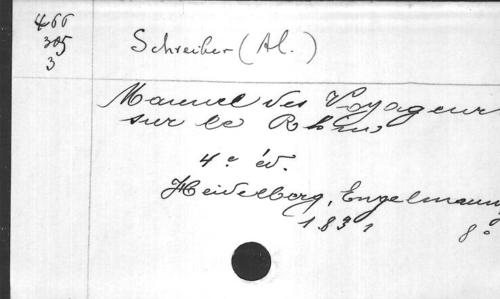 466
305
3
Schreiber (Al.)
Manuel des Voyageurs
sur le Rhin
4e éd.
Heidelberg, Engelmann
1831 8°